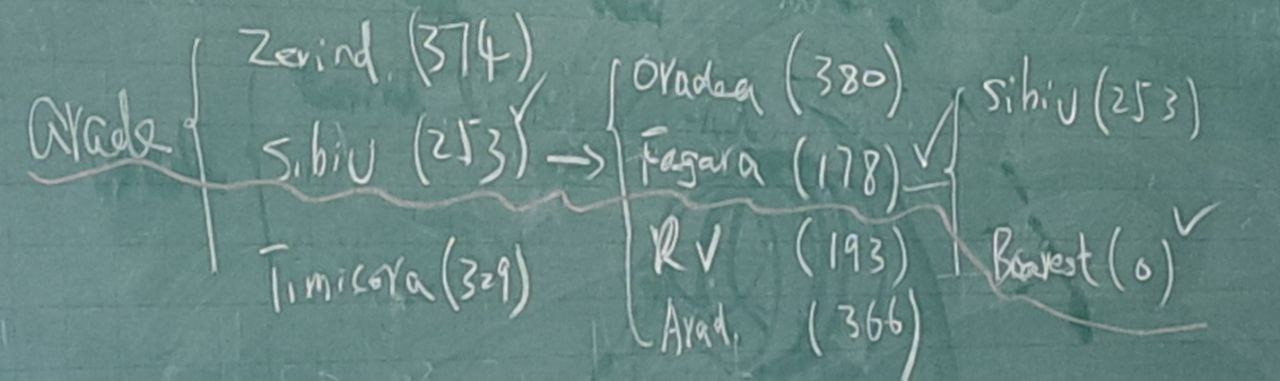 Arade
Zerind. (374)
Sibiu (253)
Timisora (329)
Oradea (380)
Fagara (178)
RV (193)
Arad. (366)
Sibiu (253)
(0)